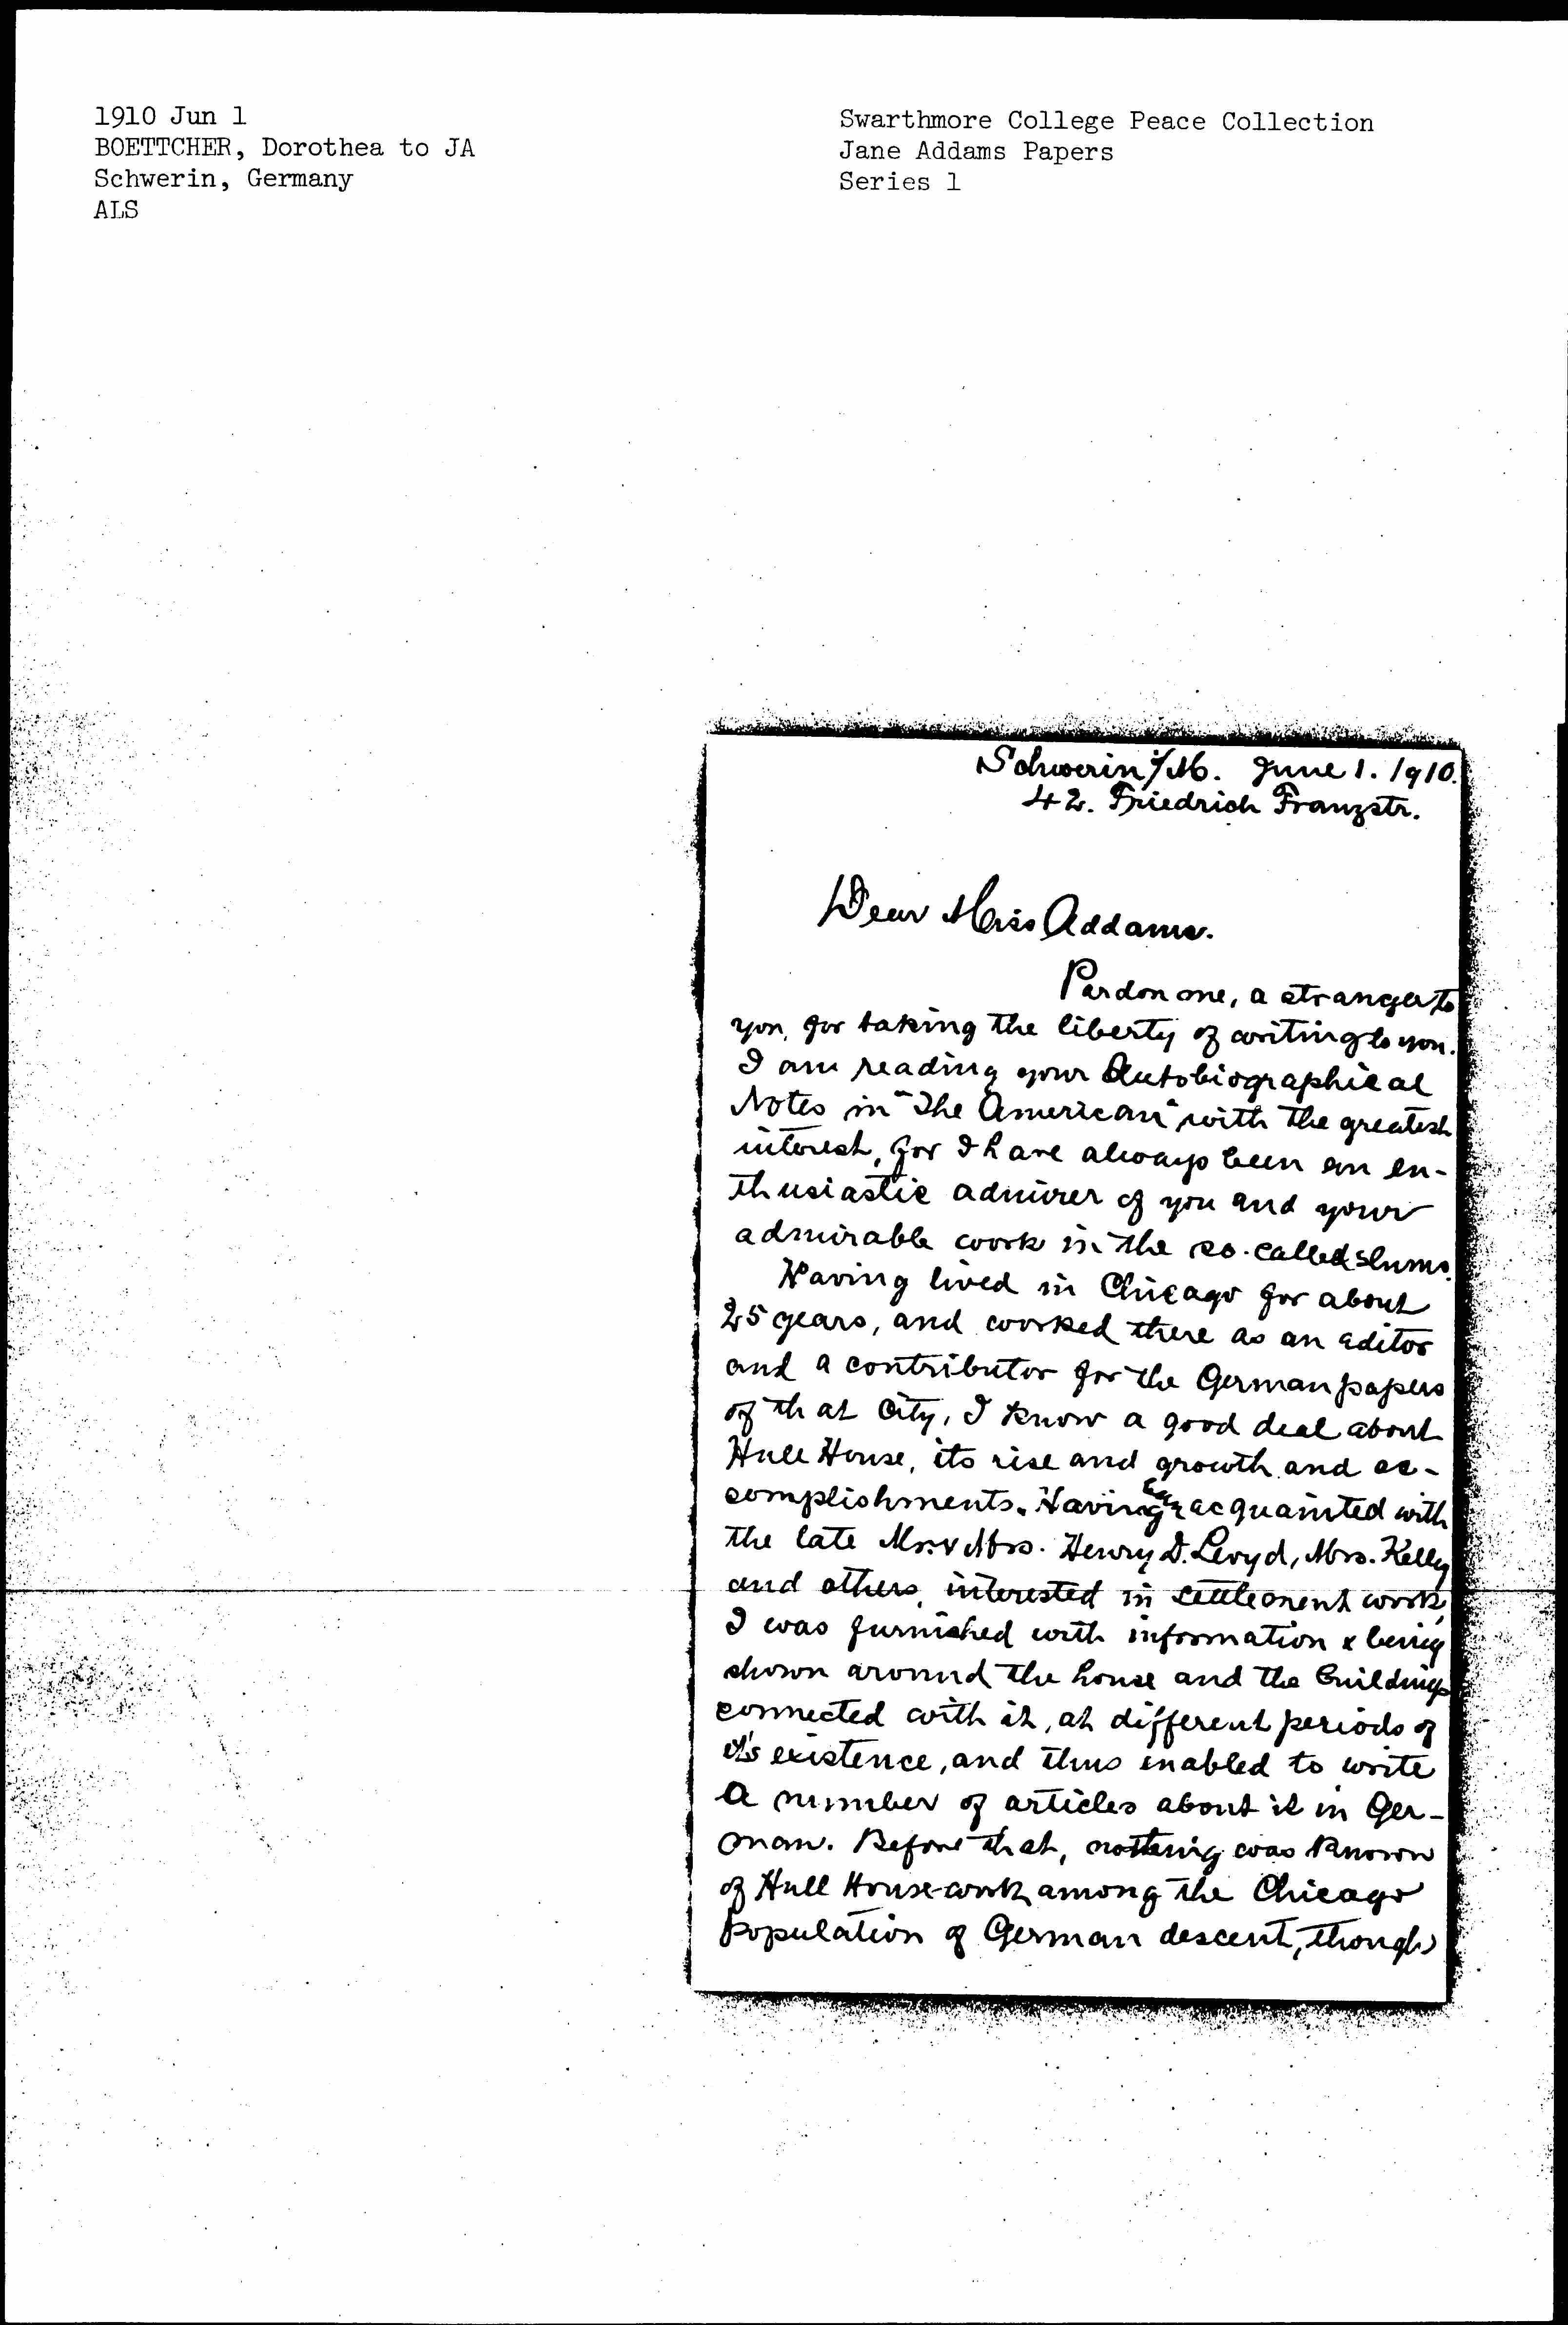 1910 Jun 1
BOETTCHER, Dorothea to JA
Schwerin, Germany
ALS
Swarthmore College Peace Collection
Jane Addams Papers
Series 1
Schwerin i/M. June 1. 1910.
42. Friedrich Franzstr.
Dear Miss Addams.
Pardon me, a stranger to
you, for taking the liberty of writing to you.
I am reading your Autobiographical
Notes in "The American" with the greatest
interest, for I have always been an en-
thusiastic admirer of you and your
admirable work in the so-called slums.
Having lived in Chicago for about
25 years, and worked there as an editor
and a contributor for the German papers
of that City, I know a good deal about
Hull House, its rise and growth and ac-
complishments. Having been acquainted with
the late Mr. & Mrs. Henry D. Lloyd, Mrs. Kelly
and others, interested in settlement work,
I was furnished with information & being
shown around the house and the buildings
connected with it, at different periods of
it's existence, and thus enabled to write
a number of articles about it in Ger-
man. Before that, nothing was known
of Hull House-work among the Chicago
population of German descent, though